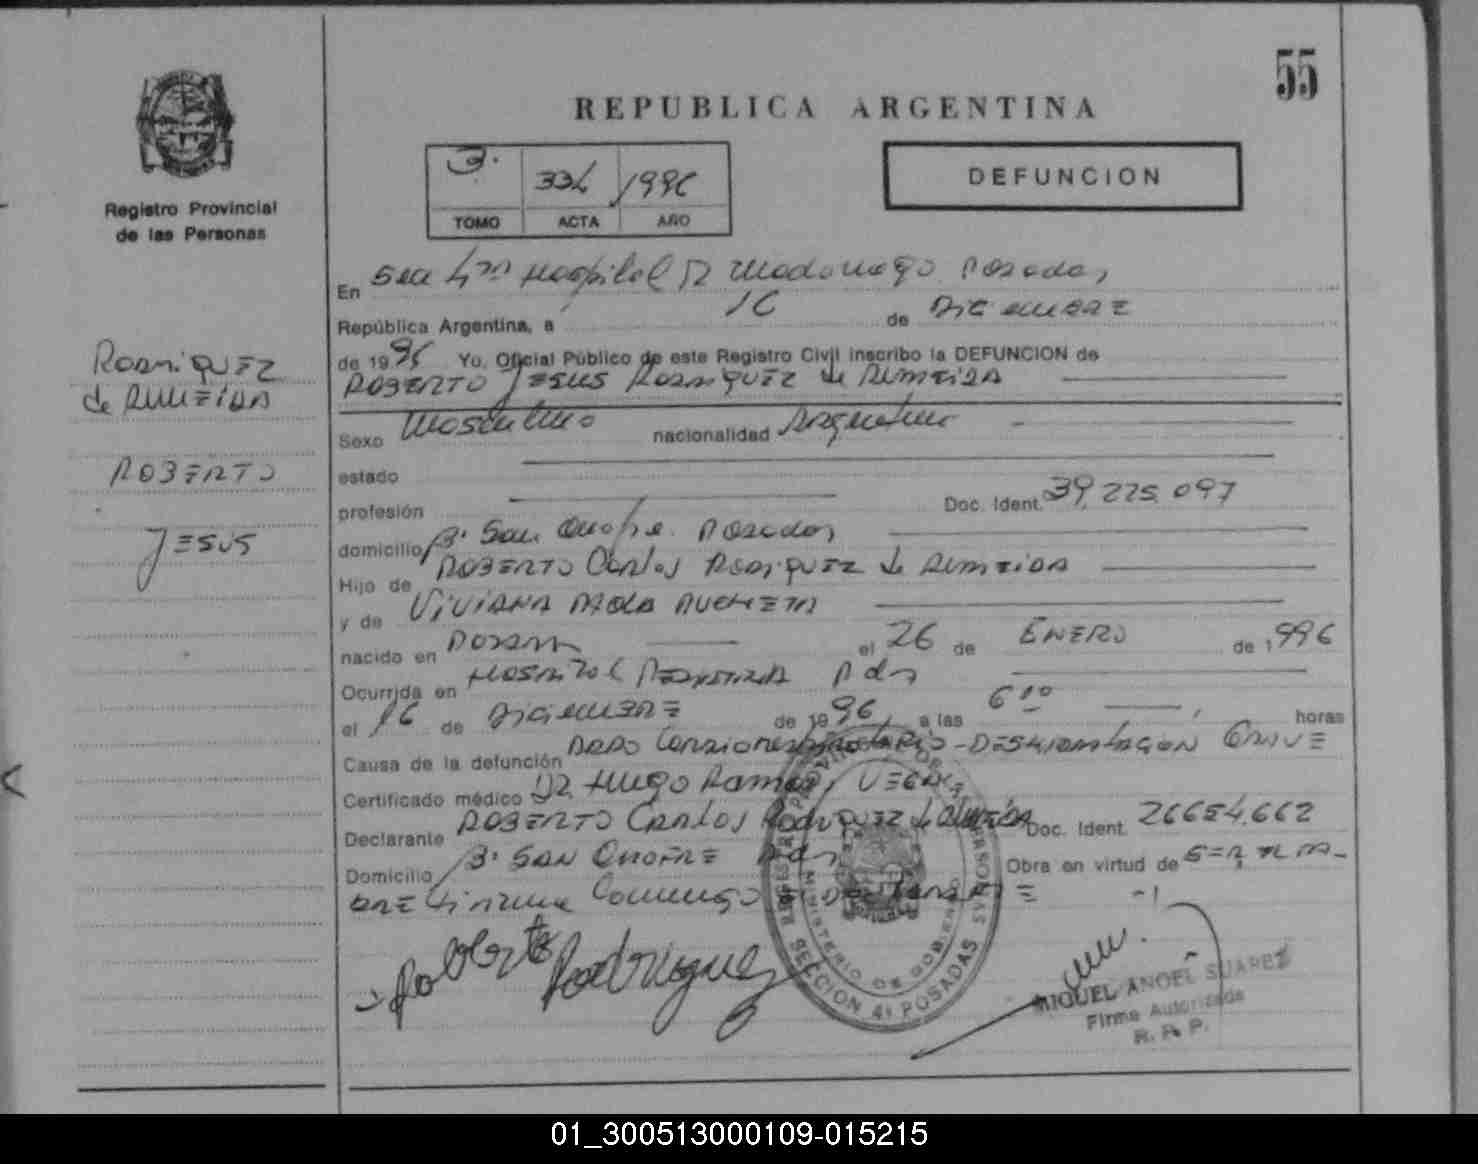 55
REPUBLICA ARGENTINA
Registro Provincial
de las Personas
3. 334 1996
TOMO ACTA AÑO
DEFUNCION
En Sec 4ta Hospital Dr Madariaga Posadas,
República Argentina, a 16 de Diciembre
de 1996 Yo, Oficial Público de este Registro Civil inscribo la DEFUNCION de
ROBERTO JESUS RODRIQUEZ de ALMEIDA
RODRIQUEZ
de ALMEIDA
ROBERTO
JESUS
Sexo Masculino nacionalidad Argentino
estado
profesión Doc. Ident. 39.225.097
domicilio B. San Onofre. Posadas
Hijo de ROBERTO Carlos RODRIQUEZ de ALMEIDA
y de VIVIANA PAOLA
nacido en el 26 de ENERO de 1996
Ocurrida en HOSPITAL PEDIATRICO Pdas
el 16 de Diciembre de 1996, a las 6 10 horas
Causa de la defunción PARO Cardiorespiratorio - DESHIDRATACION GRAVE
Certificado médico Dr. Hugo Ramon VEGA
Declarante ROBERTO Carlos Rodriquez de Almeida Doc. Ident. 26654.662
Domicilio B. SAN ONOFRE Pdas Obra en virtud de SER EL PA-
DRE firma Conmigo el DECLARANTE
Roberto Rodriguez
REGISTRO PROVINCIAL DE LAS PERSONAS
MINISTERIO DE GOBIERNO
SECCION 4ª POSADAS
MIGUEL ANGEL SUAREZ
Firma Autorizada
R. P. P.
01_300513000109-015215